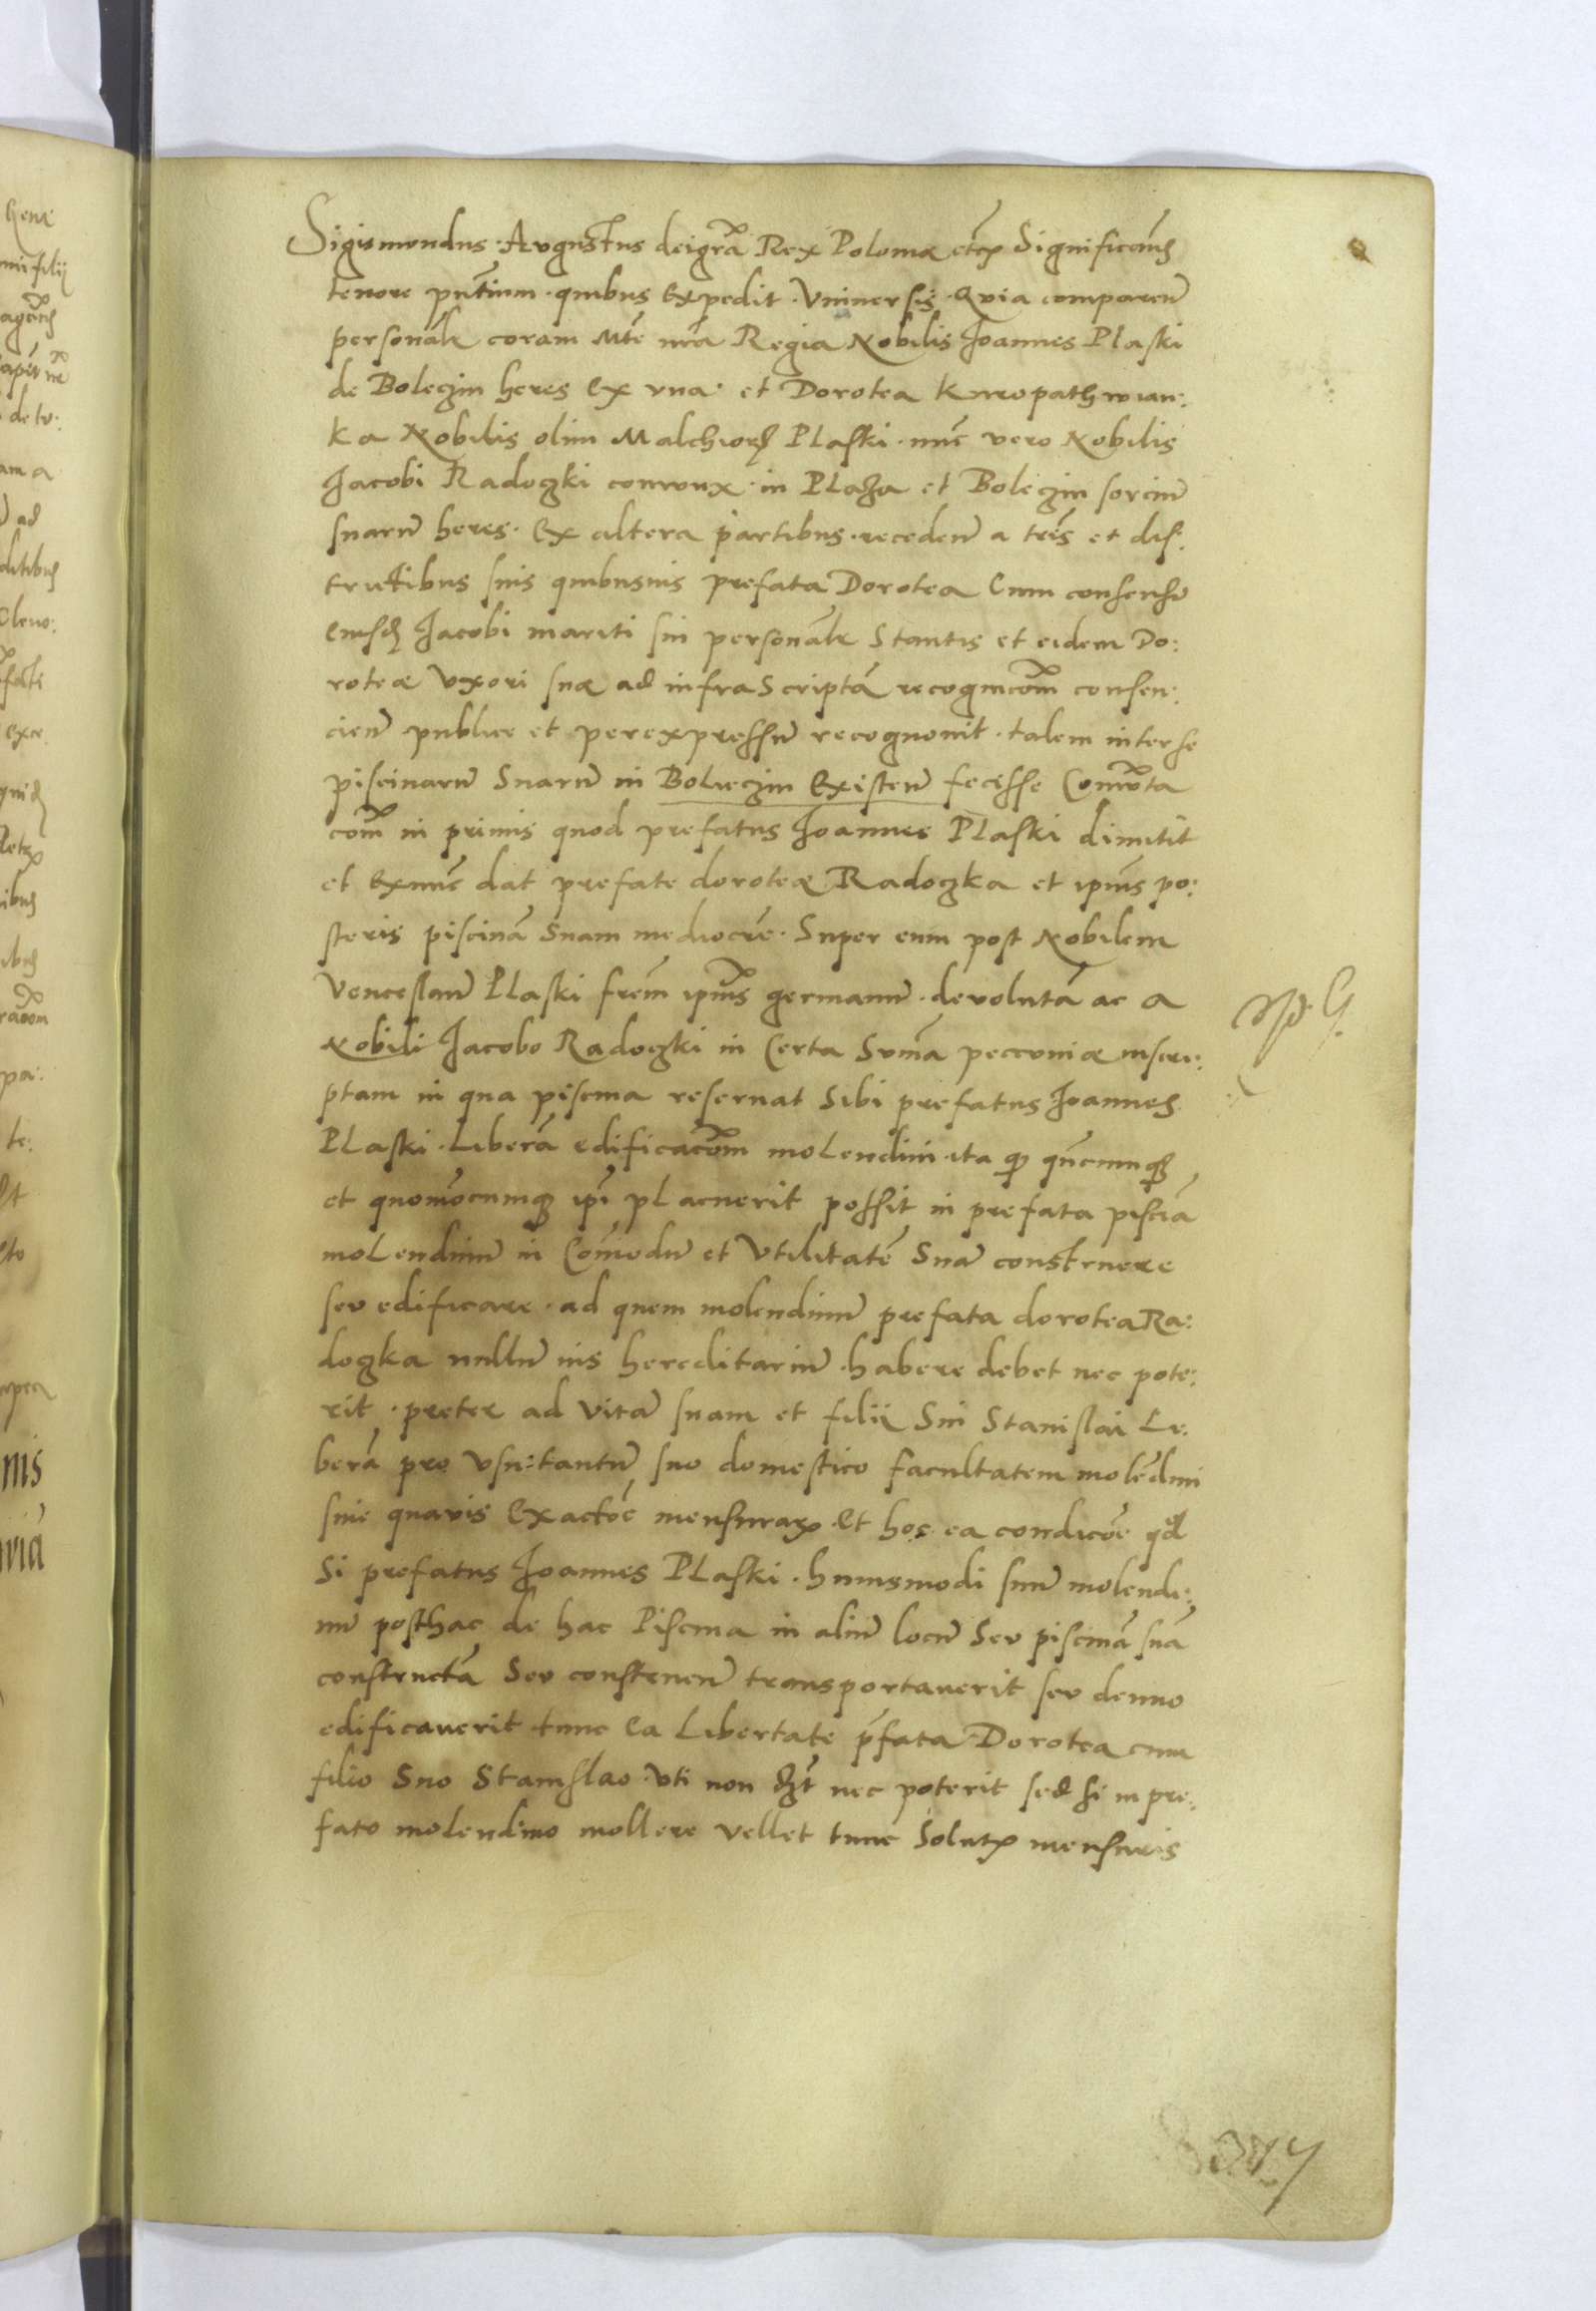 Sigismondus Avgustus deigrã Rex Poloniæ etc Significamꝰ
tenore pñtium quibus expedit Vniuersis Qvia comparen̄
personalr̃ coram Mte nr̃a Regia Nobilis Joannes Plaski
de Boleczin heres ex vna et Dorotea Knropathwian:
ka Nobilis olim Malchioris Plaski nũc vero Nobilis
Jacobi Radoczki conivnx in Plaza et Boleczin sorciũ
suarũ heres ex altera partibus receden̄ a tr̃is et dis:
trictibus suis quibusuis prefata Dorotea Cum consensu
eiusdẽ Jacobi mariti sui personalr̃ Stantis et eidem Do:
roteæ Vxori suæ ad infra Scriptã recognicom̃ consen:
cien̄ publice et per expressũ recognouit talem inter se
piscinarũ Suarũ in Boleczin Existen̄ fecisse Comuta
com̃ in primis quod prefatus Joannes Plaski dimitit
et exnũc dat prefate doroteæ Radoczka et ipiũs po:
steris piscinã Suam mediocrẽ Super eum post Nobilem
Venceslaũ Plaski frẽm ipiũs germanũ devolutã ac a
Nobili Jacobo Radoczki in Certa Sum̃a pecconiæ inscri:
ptam in qua piscina reseruat Sibi prefatus Joannes
Plaski Liberã edificacom̃ molendini ita qp qñcunqꝫ
et quomõcunqꝫ ipĩ placuerit possit in prefata pisciã
molendinũ in Com̃odũ et Vtilitatẽ Suã construere
sev edificare ad quem molendinũ prefata dorotea Ra:
doczka nullũ ius hereditariũ habere debet nec pote:
rit preter ad vitã suam et filii Sui Stanislai Li:
berã pro vsu tantũ suo domestico facultatem molẽdini
sine quavis Exactoẽ mensurarꝫ et hoc ea condicõe qđ
Si prefatus Joannes Plaski huiusmodi suũ molendi:
nũ posthac de hac Piscina in aliũ locũ Sev piscinã suã
constructã Sev construen̄ transportauerit sev denuo
edificauerit tunc ea Libertate p̃fata Dorotea cum
filio Suo Stanislao Vti non debt̃ nec poterit sed si in pre:
fato molendino mollere vellet tunc Solutꝫ mensuris